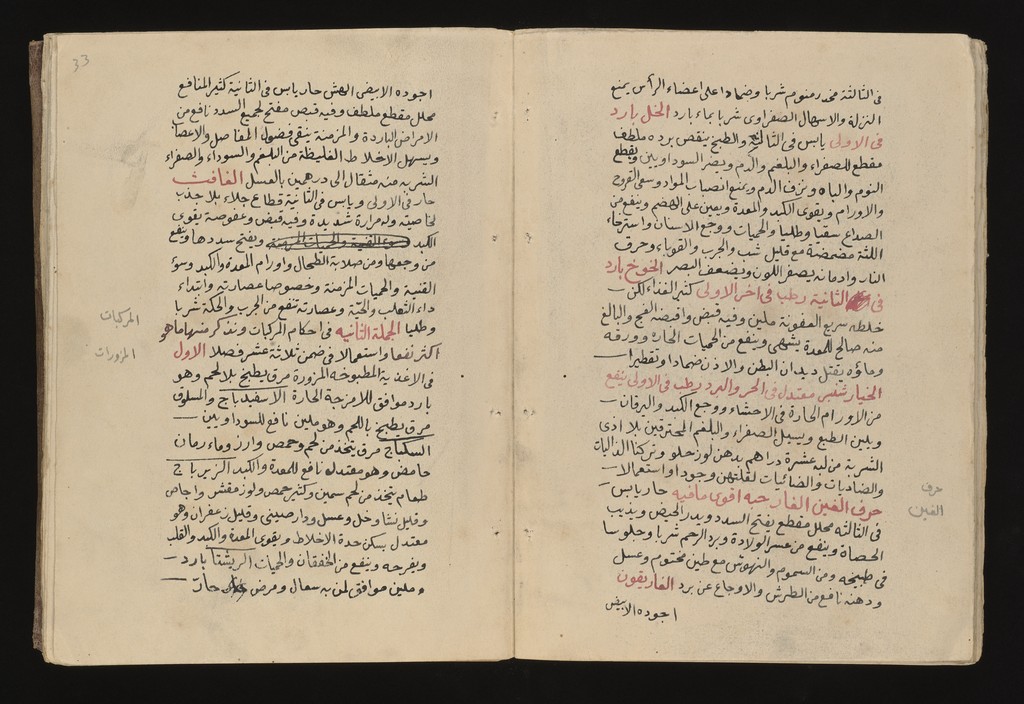 في الثالثة مخدر منوم شربا وضمادا على اعضاء الرأس يمنع
النزلة والاسهال الصفراوى شربا بماء بارد الخل بارد
فى الاولى يابس فى الثالثة والطبخ ينقص برده ملطف
مقطع للصفراء والبلغم والدم ويضر السوداويين ويقطع
النوم والباه ونزف الدم ويمنع انصباب المواد وسعى القروح
والاورام ويقوى الكبد والمعدة ويعين على الهضم وينفع من
الصداع سقيا وطليا والحميات ووجع الاسنان واسترخاء
اللثة مضمضة مع قليل شب والجرب والقوباء وحرق
النار وادمانه يصفر اللون ويضعف البصر الخوخ بارد
فى الثانية رطب فى اخر الاولى كثير الغذاء لكن
خلطه سريع العفونة ملين وفيه قبض واقبضه الفج والبالغ
منه صالح للمعدة يشهى وينفع من الحميات الحارة وورقه
وماؤه يقتل ديدان البطن والاذن ضمادا وتقطيرا
الخيار شنبر معتدل فى الحر والبرد رطب فى الاولى ينفع
من الاورام الحارة فى الاحشاء ووجع الكبد واليرقان
ويلين الطبع ويسهل الصفراء والبلغم المحترقين بلا اذى
الشربة من لبه عشرة دراهم بدهن لوز حلو وتركنا الذاليات
والضاديات والضائيات لقلتهن وجودا واستعمالا
حرف الغين الغار حبه اقوى مافيه حار يابس
فى الثالثة محلل مقطع يفتح السدد ويدر الحيض ويذيب
الحصاة وينفع من عسر الولادة وبرد الرحم شربا وجلوسا
فى طبيخه ومن السموم والنهوش مع طين مختوم وعسل
ودهنه نافع من الطرش والاوجاع عن برد الغاريقون
اجوده الابيض
حرف
الغين
33
اجوده الابيض الهش حار يابس فى الثانية كثير المنافع
محلل مقطع ملطف وفيه قبض مفتح لجميع السدد نافع من
الامراض الباردة والمزمنة ينقى فضول المفاصل والاعصاب
ويسهل الاخلاط الغليظة من البلغم والسوداء والصفراء
الشربة منه مثقال الى درهمين بالعسل الغافث
حار فى الاولى ويابس فى الثانية قطاع جلاء بلا جذب
لخاصيته وله مرارة شديدة وفيه قبض وعفوصة يقوى
الكبد ويفتح سددها وينفع
من وجعها ومن صلابة الطحال واورام المعدة والكبد وسؤ
القنية والحميات المزمنة وخصوصا عصارته وابتداء
داء الثعلب والحية وعصارته تنفع من الجرب والحكة شربا
وطليا الجملة الثانيه فى احكام المركبات ونذكر منها ما هو
اكثر نفعا واستعمالا فى ضمن ثلاثة عشر فصلا الاول
فى الاغذية المطبوخه المزورة مرق يطبخ بلا لحم وهو
بارد موافق للامزجة الحارة الاسفيدباج والمسلوق
مرق يطبخ باللحم وهو ملين نافع للسوداويين
السكباج مرق يتخذ من لحم وحمص وارز وماء رمان
حامض وهو معتدل نافع للمعدة والكبد الزيرباج
طعام يتخذ من لحم سمين وكثير حمص ولوز مقشر واجاص
وقليل نشا وخل وعسل ودارصينى وقليل زعفران وهو
معتدل يسكن حدة الاخلاط ويقوى المعدة والكبد والقلب
ويفرحه وينفع من الخفقان والحميات الريشتا بارد
وملين موافق لمن به سعال ومرض حار
المركبات
المزورات